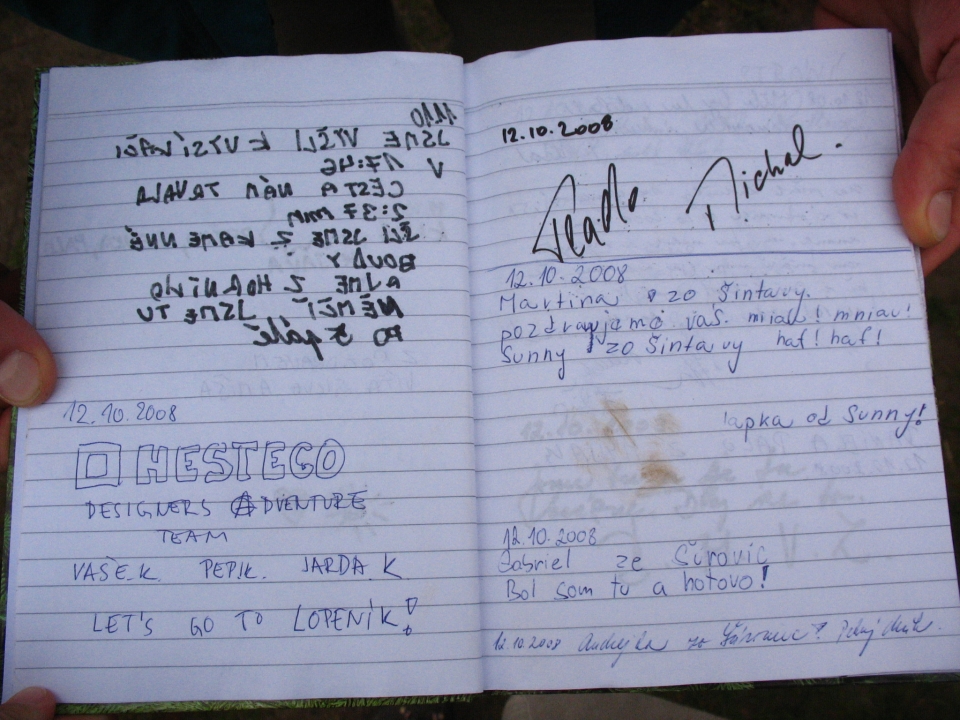 JSME VYŠLI
V 17:46
CESTA NÁM TRVALA
2:37 MIN
ŠLI JSME Z KAMENNÉ
BOUDY
JSME TU
PO 5
12.10.2008
HESTEGO
DESIGNERS ADVENTURE
TEAM
VAŠE.K. PEPI.K. JARDA.K
LET'S GO TO LOPENÍK!
12.10.2008
Michal.
12.10.2008
Martina zo Šintavy.
pozdravujeme vás. mňau! mniau!
Sunny zo Šintavy haf! haf!
lapka od Sunny!
12.10.2008
Gabriel ze Širovic
Bol som tu a hotovo!
12.10.2008 Andrejka